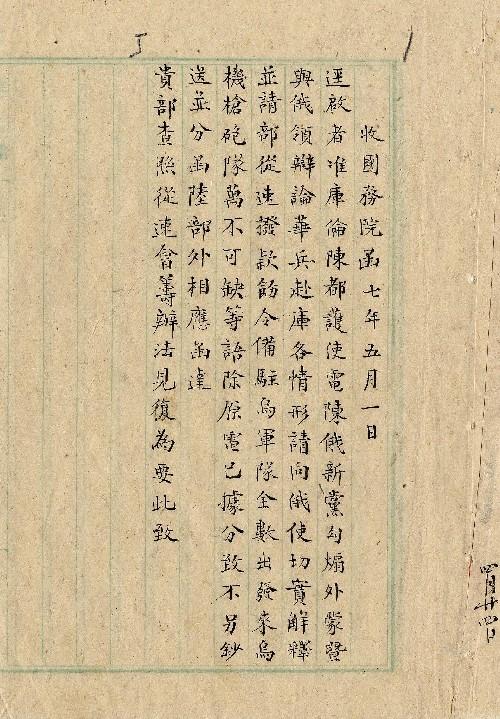 收國務院函七年五月一日
逕啟者准庫倫陳都護使電陳俄新黨勾煽外蒙暨
與俄領辯論華兵赴庫各情形請向俄使切實解釋
並請部從速撥款飭令備駐烏軍隊全數出發來烏
機槍砲隊萬不可缺等語除原電已據分致不另鈔
送並分函陸部外相應函達
貴部查照從速會籌辦法見復為要此致
四月廿四日